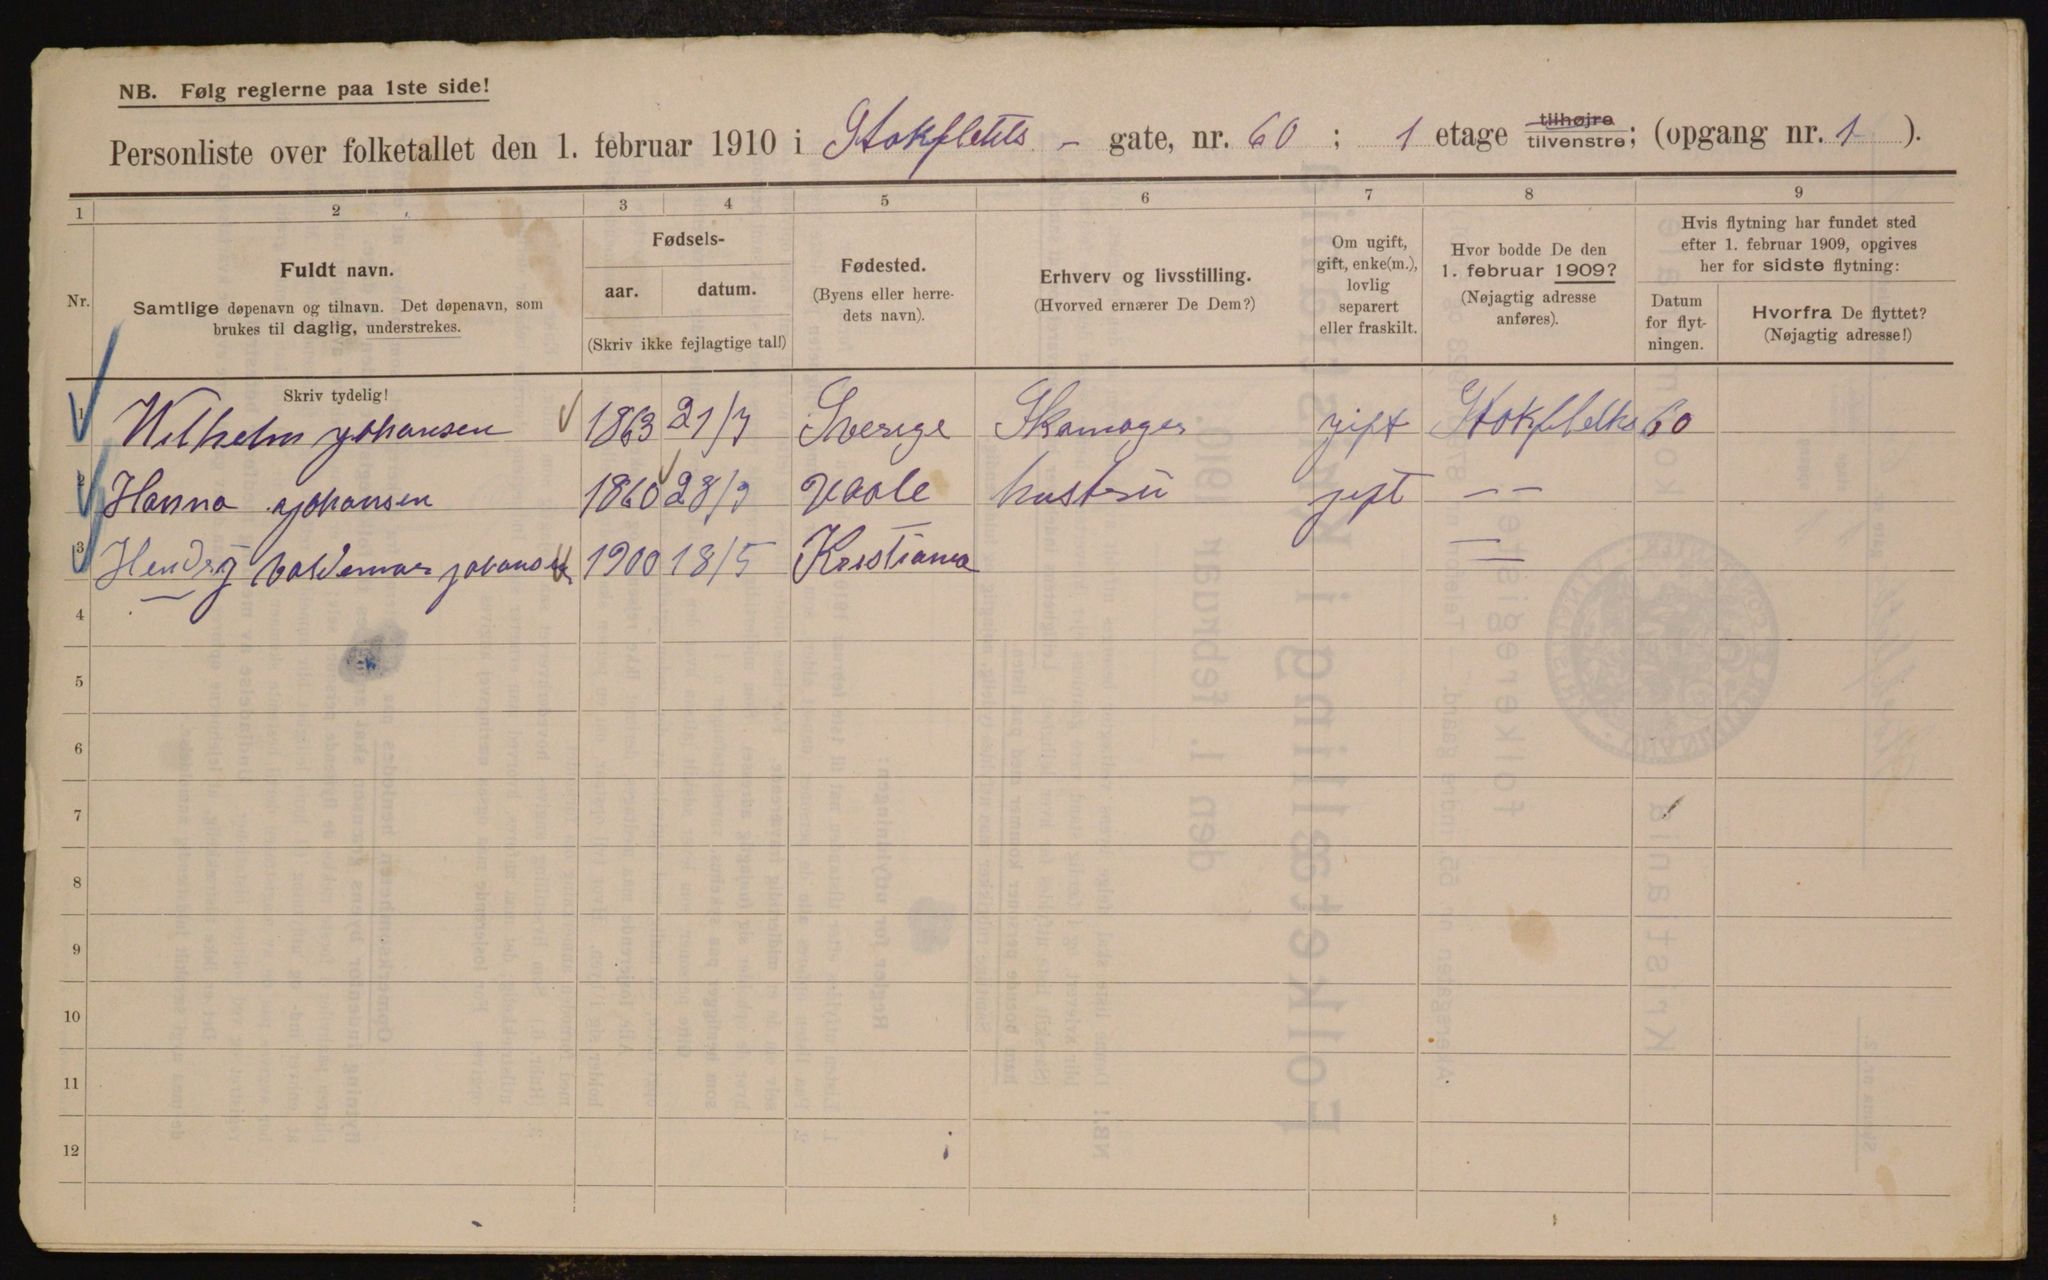 NB. Følg reglerne paa 1ste side!
Personliste over folketallet den 1. februar 1910 i Stokfleths - gate, nr. 60 ; 1 etage tilhøjre tilvenstre; (opgang nr. 1 ).
1 2 3 4 5 6 7 8 9
Nr.
Fuldt navn.
Samtlige døpenavn og tilnavn. Det døpenavn, som
brukes til daglig, understrekes.
Skriv tydelig!
Fødsels-
aar. datum.
(Skriv ikke fejlagtige tal!)
Fødested.
(Byens eller herre-
dets navn).
Erhverv og livsstilling.
(Hvorved ernærer De Dem?)
Om ugift,
gift, enke(m.),
lovlig
separert
eller fraskilt.
Hvor bodde De den
1. februar 1909?
(Nøjagtig adresse
anføres).
Hvis flytning har fundet sted
efter 1. februar 1909, opgives
her for sidste flytning:
Datum
for flyt-
ningen.
Hvorfra De flyttet?
(Nøjagtig adresse!)
1 Wilhelm Johansen 1863 21/3 Sverige Skomager gift Stokfleths 60
2 Hanna Johansen 1860 28/9 Vaale hustru gift — —
3 Hendrij Valdemar Johansen 1900 18/5 Kristiania — —
4
5
6
7
8
9
10
11
12